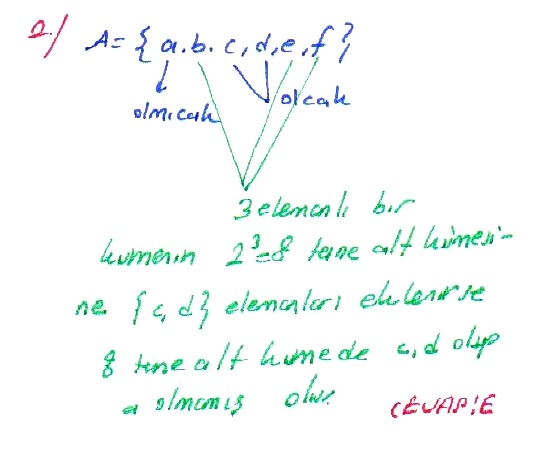 2.) A = { a.b.c,d,e,f}
olmıcak olcak
3 elemanlı bir
kümenin 2³=8 tane alt kümesi-
ne {c,d} elemanları eklenirse
8 tane alt kümede c,d olup
a olmamış olur. CEVAP:E